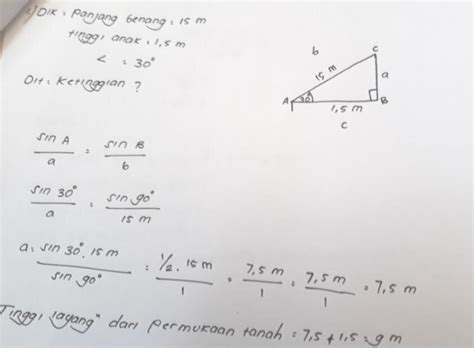 1) DIK : Panjang benang : 15 m
tinggi anak : 1,5 m
< : 30°
DIt : Ketinggian ?
b
C
15 m
a
A
30°
B
1,5 m
c
sin A / a = sin B / b
sin 30° / a = sin 90° / 15 m
a : sin 30° . 15 m / sin 90° = 1/2 . 15 m / 1 = 7,5 m / 1 = 7,5 m / 1 = 7,5 m
Tinggi layang" dari permukaan tanah = 7,5 + 1,5 = 9 m